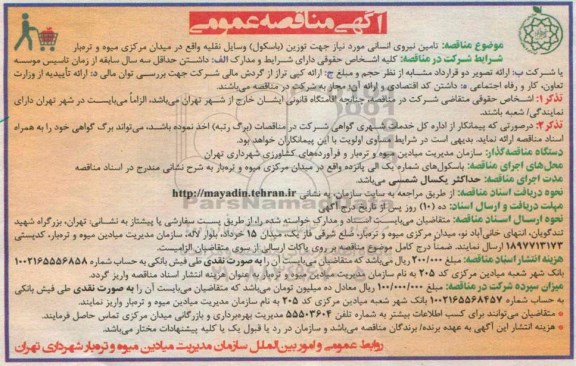 آگهی مناقصه عمومی
موضوع مناقصه: تامین نیروی انسانی مورد نیاز جهت توزین (باسکول) وسایل نقلیه واقع در میدان مرکزی میوه و تره‌بار
شرایط شرکت در مناقصه: کلیه اشخاص حقوقی دارای شرایط و مدارک الف: داشتن حداقل سه سال سابقه از زمان تاسیس موسسه
یا شرکت ب: ارائه تصویر دو قرارداد مشابه از نظر حجم و مبلغ ج: ارائه کپی تراز از گردش مالی شرکت جهت بررسی توان مالی د: ارائه تأییدیه از وزارت
تعاون، کار و رفاه اجتماعی ه: داشتن کد اقتصادی و ارائه آن؛ مجاز به شرکت در مناقصه می‌باشند.
تذکر۱: اشخاص حقوقی متقاضی شرکت در مناقصه چنانچه اقامتگاه قانونی ایشان خارج از شهر تهران می‌باشد، الزاماً می‌بایست در شهر تهران دارای
نمایندگی/ شعبه باشند.
تذکر۲: درصورتی که پیمانکار از اداره کل خدمات شهری گواهی شرکت در مناقصات (برگ رتبه) اخذ نموده باشند، می‌تواند برگ گواهی خود را به همراه
اسناد مناقصه ارائه نماید. بدیهی است در شرایط مساوی اولویت با این پیمانکاران خواهد بود.
دستگاه مناقصه‌گذار: سازمان مدیریت میادین میوه و تره‌بار و فرآورده‌های کشاورزی شهرداری تهران
محل‌های اجرای مناقصه: باسکول‌های شماره یک الی پانزده واقع در میدان مرکزی میوه و تره‌بار به شرح نشانی مندرج در اسناد مناقصه
مدت اجرای مناقصه: حداکثر یکسال شمسی می‌باشد.
نحوه دریافت اسناد مناقصه: از طریق مراجعه به سایت سازمان، به نشانی http://mayadin.tehran.ir
مهلت دریافت و ارسال اسناد: ده (۱۰) روز پس از تاریخ درج آگهی
نحوه ارسال اسناد مناقصه: متقاضیان می‌بایست اسناد و مدارک خواسته شده را، از طریق پست سفارشی یا پیشتاز به نشانی: تهران، بزرگراه شهید
تندگویان، انتهای خانی‌آباد نو، میدان مرکزی میوه و تره‌بار، ضلع شرقی فاز یک، میدان ۱۵ خرداد، بلوار لاله، سازمان مدیریت میادین میوه و تره‌بار، کدپستی
۱۸۹۷۷۱۳۱۷۳ ارسال نمایند. ضمناً درج کامل موضوع مناقصه بر روی پاکات ارسالی از سوی متقاضیان الزامیست.
هزینه انتشار اسناد مناقصه: مبلغ ۲۰۰/۰۰۰ ریال می‌باشد که متقاضیان می‌بایست آن را به صورت نقدی طی فیش بانکی به حساب شماره ۱۰۰۲۱۶۵۵۵۶۸۵۸
بانک شهر شعبه میادین مرکزی کد ۲۰۵ به نام سازمان مدیریت میادین میوه و تره‌بار به عنوان هزینه انتشار اسناد مناقصه واریز گردد.
میزان سپرده شرکت در مناقصه: مبلغ ۱۰۰/۰۰۰/۰۰۰ ریال معادل ده میلیون تومان می‌باشد که متقاضیان می‌بایست آن را به صورت نقدی طی فیش بانکی
به حساب شماره ۱۰۰۲۱۶۵۵۶۸۴۵۷ بانک شهر شعبه میادین مرکزی کد ۲۰۵ به نام سازمان مدیریت میادین میوه و تره‌بار واریز نمایند.
* متقاضیان می‌توانند برای کسب اطلاعات بیشتر به شماره تلفن ۵۵۵۰۳۶۰۴ مدیریت بهره‌برداری و بازرگانی میدان مرکزی تماس حاصل فرمایند.
* هزینه انتشار این آگهی به عهده برنده/ برندگان مناقصه می‌باشد و سازمان در رد یا قبول یک یا کلیه پیشنهادات مختار می‌باشد.
روابط عمومی و امور بین‌الملل سازمان مدیریت میادین میوه و تره‌بار شهرداری تهران